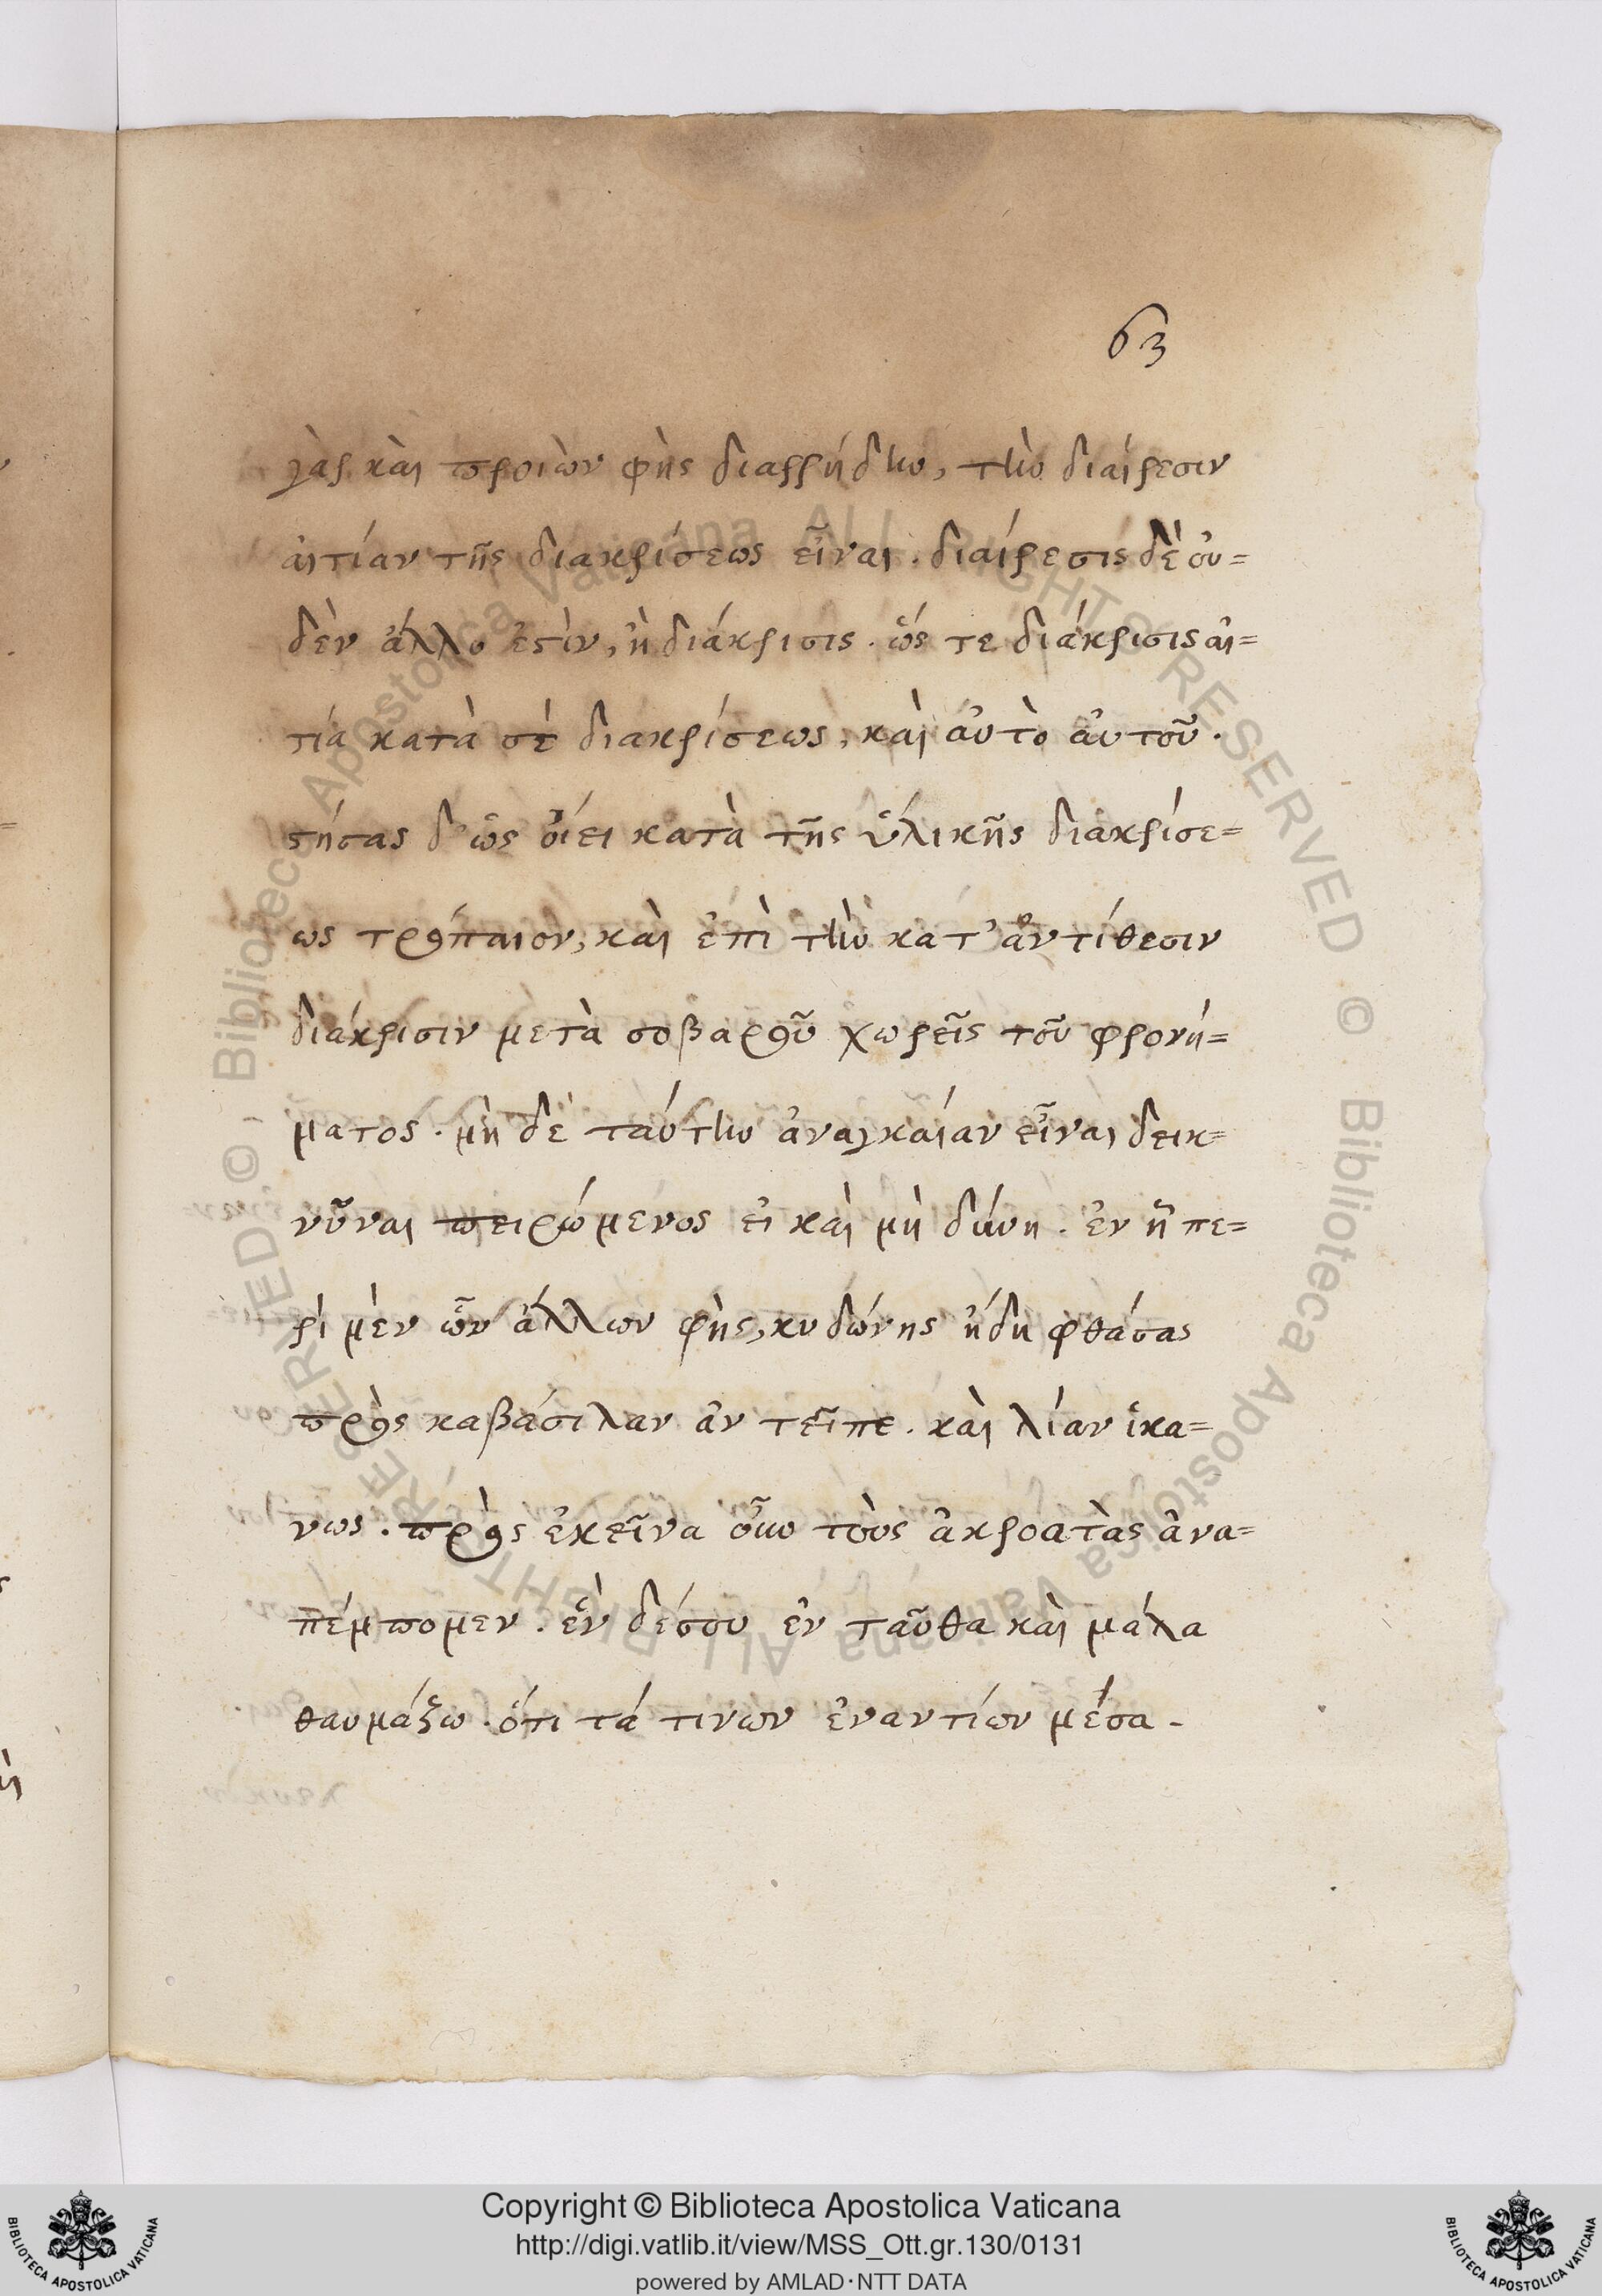 63
γὰρ καὶ προιὼν φὴς διαρρήδην, τὴν διαίρεσιν
αἰτίαν τῆς διακρίσεως εἶναι. διαίρεσις δὲ οὐ=
δὲν ἄλλο ἐστὶν, ἢ διάκρισις. ὥς τε διάκρισις αἰ=
τία κατὰ σὲ διακρίσεως, καὶ αὐτὸ αὑτοῦ.
στήσας δ' ὡς οἴει κατὰ τῆς ὑλικῆς διακρίσε=
ως τρόπαιον, καὶ ἐπὶ τὴν κατ' ἀντίθεσιν
διάκρισιν μετὰ σοβαροῦ χωρεῖς τοῦ φρονή=
ματος. μὴ δὲ ταύτην ἀναγκαίαν εἶναι δεικ=
νῦναι πειρώμενος εἰ καὶ μὴ δύνη. ἐν ᾗ πε=
ρὶ μὲν ὧν ἄλλων φὴς, κυδώνης ἤδη φθάσας
πρὸς καβάσιλαν ἀν τεῖπε. καὶ λίαν ἱκα=
νως. πρὸς ἐκεῖνα οὖν τοὺς ἀκροατὰς ἀνα=
πέμπομεν. ἓν δέσου ἐν ταῦθα καὶ μάλα
θαυμάζω. ὅτι τά τινων ἐναντίων μέσα.
Copyright © Biblioteca Apostolica Vaticana
http://digi.vatlib.it/view/MSS_Ott.gr.130/0131
powered by AMLAD·NTT DATA
BIBLIOTECA APOSTOLICA VATICANA
BIBLIOTECA APOSTOLICA VATICANA
© Biblioteca Apostolica Vaticana ALL RIGHTS RESERVED
© Biblioteca Apostolica Vaticana ALL RIGHTS RESERVED